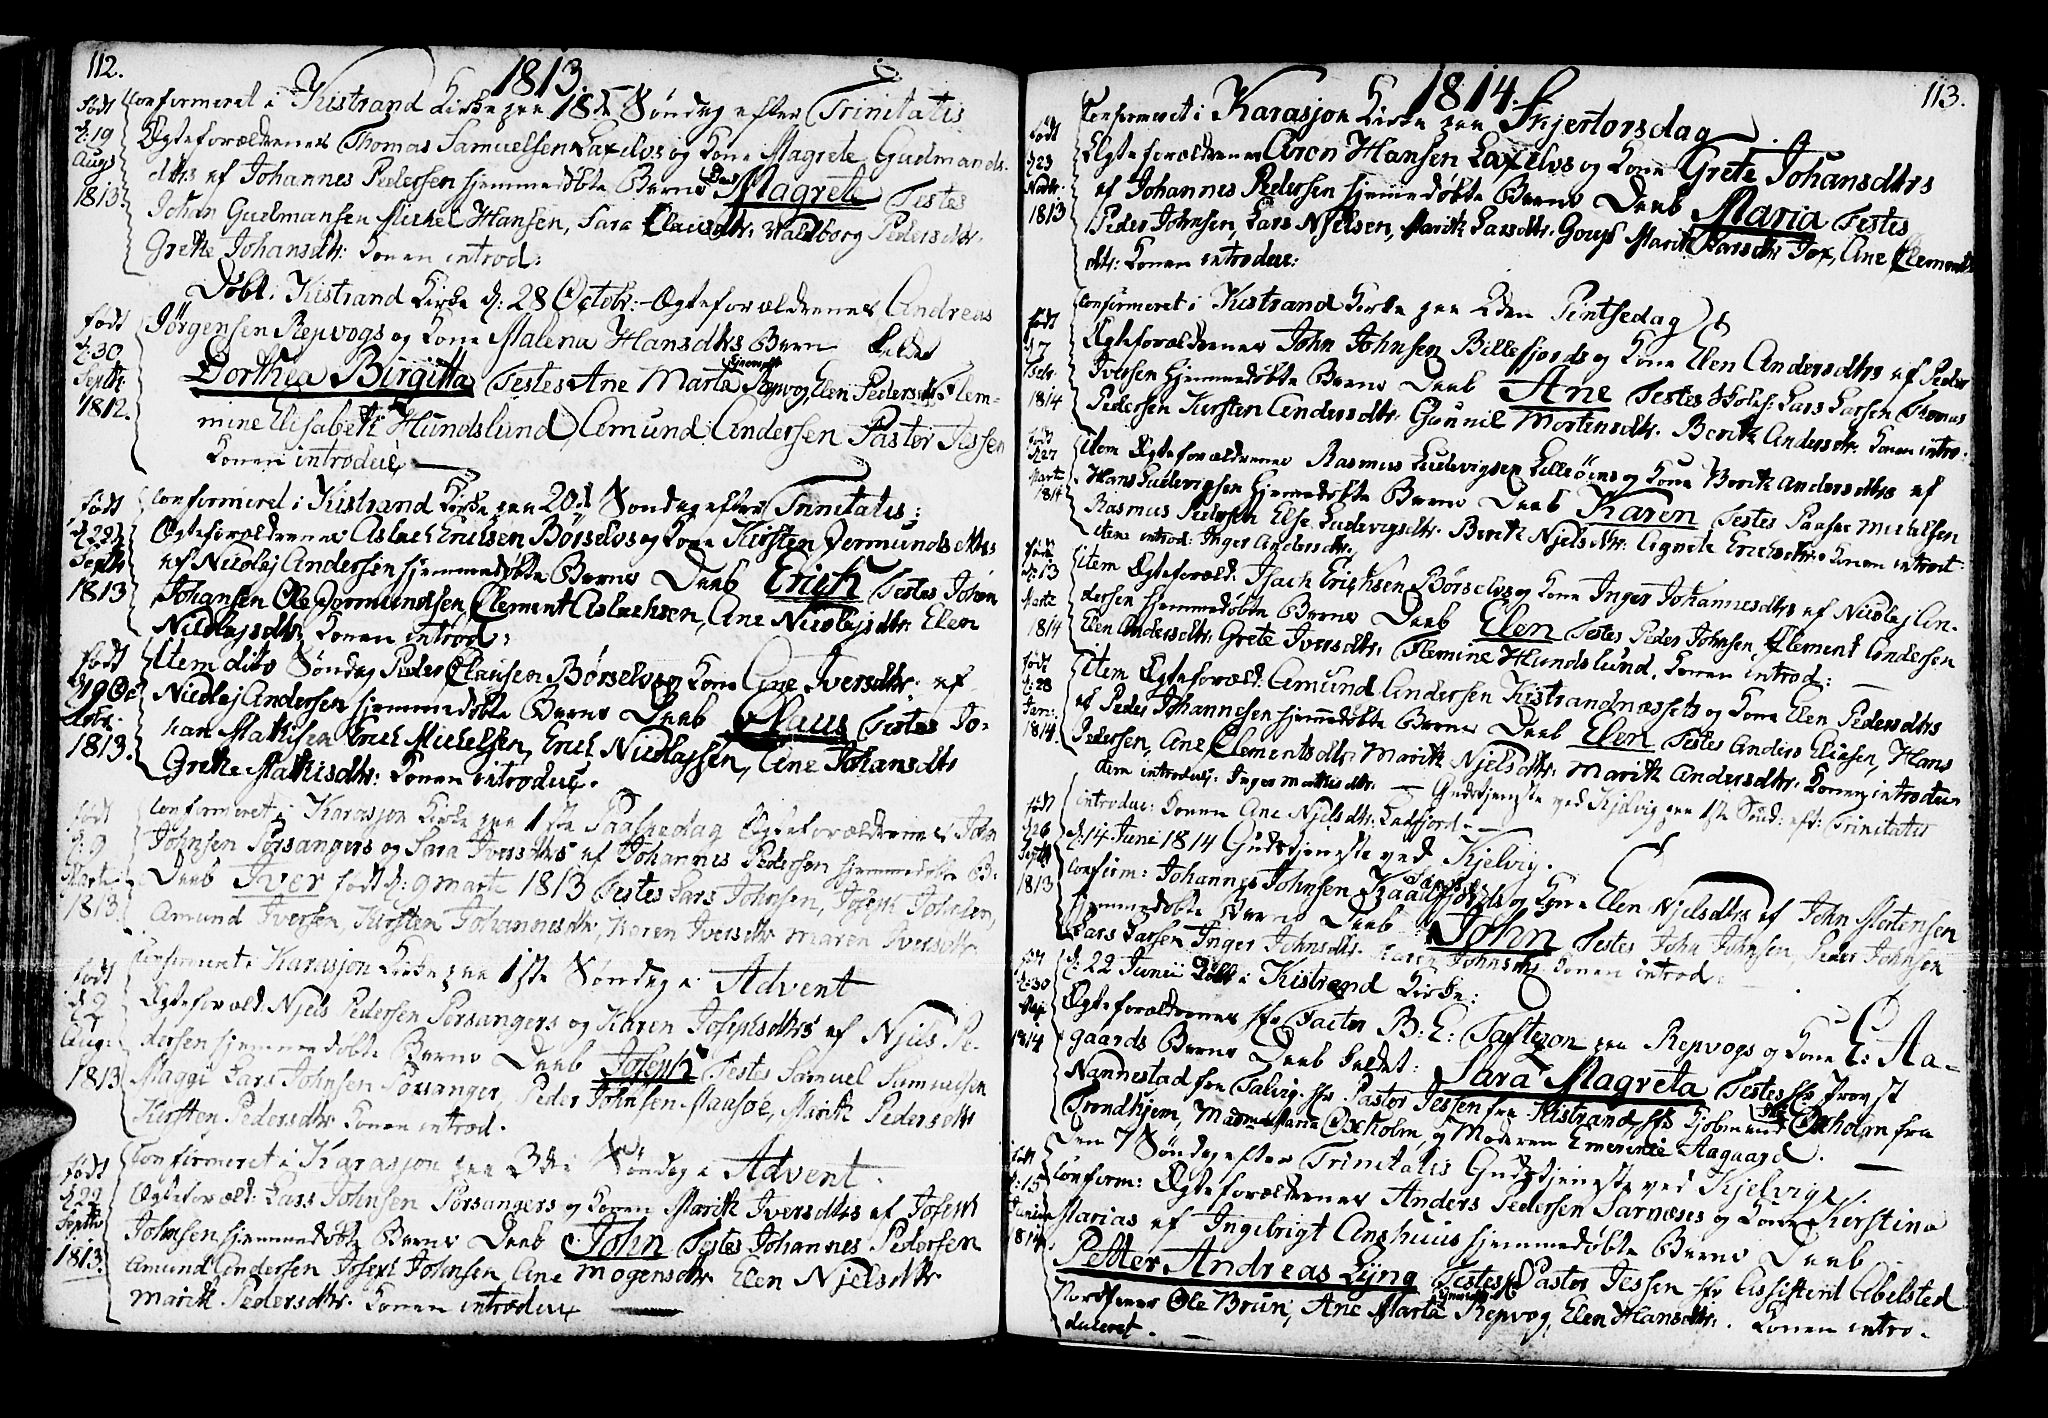 112.
1813.
født d: 19 Augs 1813.
Confirmeret i Kistrand Kirke paa 18de Søndag efter Trinitatis
Ægteforældrenes Thomas Samuelsen Laxelvs og Kone Magrete Gudmands
dtrs af Johannes Pedersen hjemmedøbte Barns Daab Magrete Testes
Johan Gudmansen Mickel Hansen, Sara Clausdtr. Waldborg Pedersdtr.
Grethe Johansdtr: Konen introd:
født d: 30 Septbr. 1812.
Døbt. Kistrand Kirke d: 28 Octobr: Ægteforældrenes Andreas
Jørgensen Repvogs og Kone Malena Hansdtrs Barn kaldet
Dorthea Birgitta Testes Ane Marta Repvog, Elen Pedersdtr. Flem-
mine Elisabeth Hundslund, Amund Andersen Pastor Jessen
Konen introduc.
født d. 22 Septbr 1813
Confirmeret i Kistrand Kirke paa 20d Søndag efter Trinitatis:
Ægteforældrenes Aslach Erichsen Børselvs og Kone Kirsten Jormundsdtrs
af Nicolaj Andersen hjemmedøbte Barns Daab Erich Testes Johan
Johansen Ole Jormundsen, Clement Aslachsen, Ane Nicolajsdtr. Elen
Nicolajsdtr. Konen introd:
født d 19 Octobr. 1813.
Item dito Søndag Peder Clausen Børselvs og Kone Ane Iversdtr: af
Nicolaj Andersen hjemmedøbte Barns Daab Claus Testes Jo-
han Mathisen Erich Michelsen, Erich Nicolajsen, Ane Johansdtr
Grethe Mathisdtr: Konen introduc.
født d: 9 Marti 1813.
Confirmeret i Karasjon Kirke paa 1ste Paaskedag Ægteforældrenes John
Johnsen Porsangers og Sara Iversdtrs af Johannes Pedersen hjemmedøbte B:
Daab Iver født d: 9 marti 1813 Testes Lars Johnsen, Joseph Johnsen,
Amund Iversen, Kirsten Johannesdtr, Karen Iversdtr Maren Iversdtr
født d. 2 Aug: 1813
Confirmeret i Karasjon Kirke paa 1ste Søndag i Advent
Ægteforæld: Njels Pedersen Porsangers og Karen Josephsdtrs af Njels Pe-
dersen hjemmedøbte Barns Daab Joseph Testes Samuel Samuelsen
Maggi Lars Johnsen Porsanger, Peder Johnsen Maasøe, Marith Pedersdtr
Kirsten Pedersdtr Konen introd.
født d 22 Septbr 1813.
Confirmeret i Karasjon paa 3die Søndag i Advent.
Ægteforæld: Lars Johnsen Porsangers og Konen Marith Iversdtrs af Joseph
Johnsen hjemmedøbte Barns Daab John Testes Johannes Pedersen
Amund Andersen Joseph Johnsen, Ane Mogensdtr Elen Njelsdtr
Marith Pedersdtr. Konen introduc
113.
1814.
født d 23 Novbr. 1813
Confirmeret i Karasjon Kirke paa Skjertorsdag
Ægteforældrenes Aron Hansen Laxelvs og Kone Grete Johansdtrs
af Johannes Pedersen hjemmedøbte Barns Daab Maria Testes
Peder Johnsen, Lars Njelsen, Marith Larsdtr. Marith Larsdtr Ane Clements
dtr: Konen introduc:
født d 7 Febr 1814
Confirmeret i Kistrand Kirke paa 2den Pintsedag
Ægteforældrenes John Johnsen Billefjords og Kone Elen Andersdtrs af Peder
Iversen hjemmedøbte Barns Daab Ane Testes Lars Larsen Thomas
Pedersen Kirsten Andersdtr. Gunnil Mortensdtr. Berith Andersdtr. Konen intro:
født d 27 Marti 1814
item Ægteforældrenes Rasmus Ludevigsen Lilleøens og Kone Berith Andersdtrs af
Hans Ludevigsen hjemmedøbte Barns Daab Karen Testes Michelsen
Rasmus Pedersen Else Ludevigsdtr. Berith Njelsdtr. Agnete Erichsdtr. Konen introd
item introd: Inger Andersdtr.
født d: 13 Marti 1814
item Ægteforæld: Isach Erichsen Børselvs og Kone Inger Johannesdtrs af Nicolaj An-
dersen hjemmedøbte Barns Daab Elen Testes Peder Johnsen, Clement Andersen
Elen Andersdtr. Grete Iversdtr. Flemine Hundslund. Konen introd:
født d: 28 Janr: 1814.
item Ægteforæld: Amund Andersen Kistrandnæssets og Kone Elen Pedersdtrs
af Peder Johannesen hjemmedøbte Barns Daab Elen Testes Anders Eliasen, Hans
Pedersen, Ane Clementsdtr. Marith Njelsdtr. Marith Andersdtr. Konen introduc
item introduc: Inger Mathisdtr. — Gudstjeneste ved Kjelvig paa 1ste Sønd: eft: Trinitatis
født d 26 Septbr 1813
introduc: Konen Ane Njelsdtr.
d: 14 Juni 1814 Gudstjeneste ved Kjelvig.
Confirm: Johannes Johnsen Kaafjords og Kone Elen Njelsdtrs af John Mortensen
hjemmedøbte Barns Daab John Testes John Johnsen, Peder Johnsen
Lars Larsen, Inger Johnsdtr. Karen Johnsdtr Konen introd.
født d: 30 Maji 1814
d: 22 Junii Døbt i Kistrand Kirke:
Ægteforældrenes Hr Factor B: E: paa Repvogs og Kone E: Aa-
gaards Barns Daab kaldet: Sara Magreta Testes Hr Provst
Nannestad fra Talvig. Hr Pastor Jessen fra Kistrand, Hr Kjøbmand Oxholm fra
Trondhjem, Madme Maria Oxholm, og Moderen Emerence Aagaard.
født d: 15 Junii 1814
Den 7 Søndag efter Trinitatis Gudstjeneste ved Kjelvig.
Confirm: Ægteforældrenes Anders Pedersen Sarnæses og Kone Kerstina
Marias af Ingebrigt hjemmedøbte Barns Daab
Petter Andreas Lyng Testes Hr Pastor Jessen Hr Assistent Abelsted
Ole Brun, Ane Marta Repvog, Elen Hansdtr. Konen intro-
duceret.